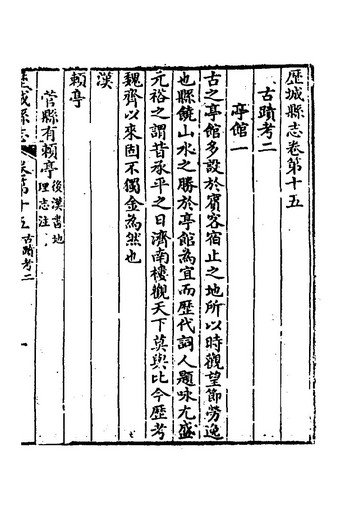 歷城縣志卷第十五
古蹟考二
亭館一
古之亭館多設於賓客宿止之地所以時觀望節勞逸
也縣饒山水之勝於亭館為宜而歷代詞人題咏尤盛
元裕之謂昔承平之日濟南樓觀天下莫與比今歷考
魏齊以來固不獨金為然也
漢
賴亭
菅縣有賴亭後漢書地理志注
歷城縣志 卷第十五 古蹟考二 一